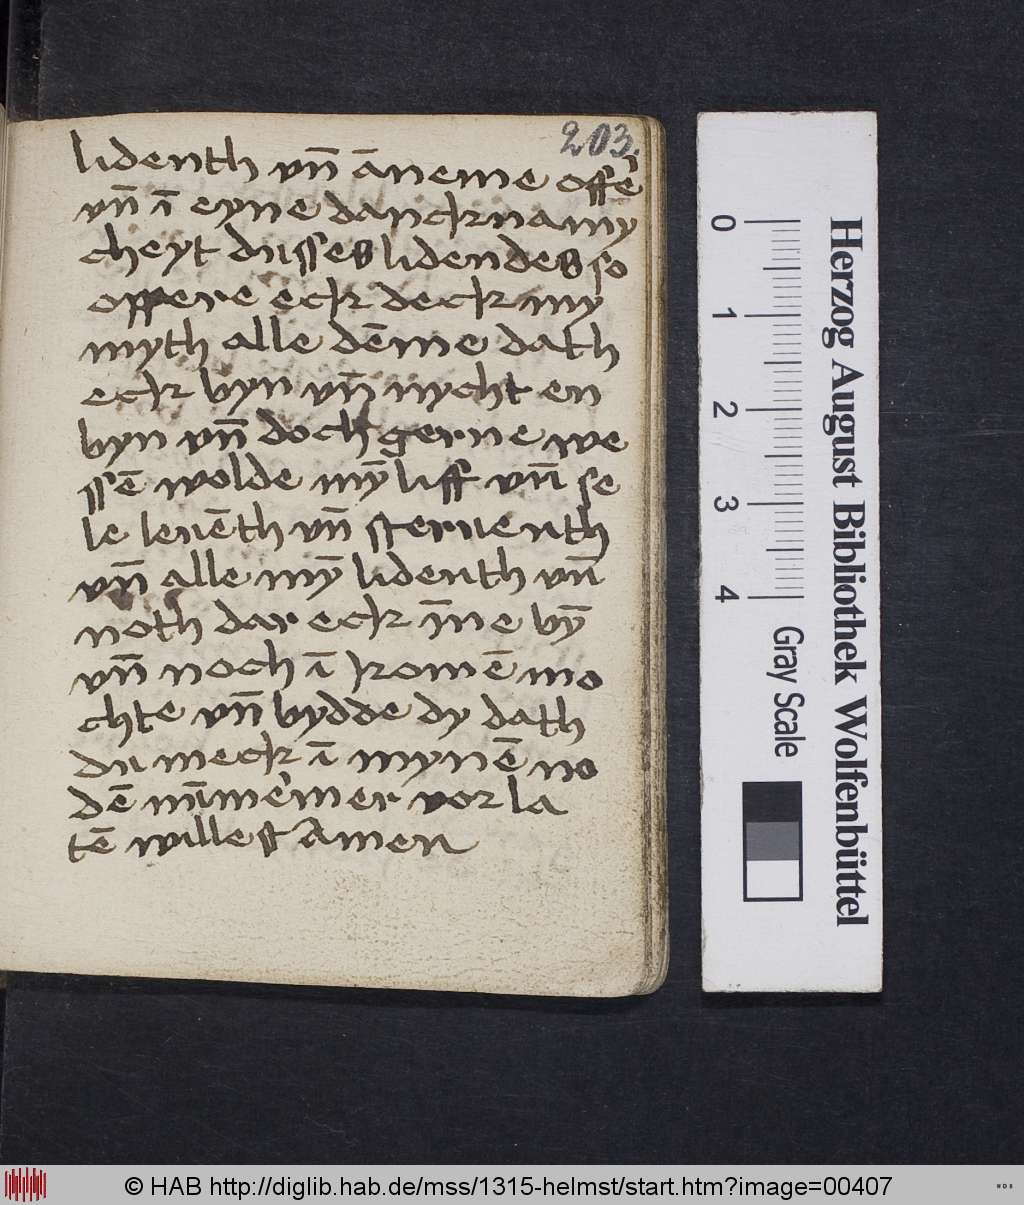 203.
lidenth vn̄ āneme offē
vn̄ ī eyne dancknamy
cheyt dusses lidendes so
offere eck deck my
myth alle dēme dath
eck byn vn̄ nycht en
byn vn̄ doch gerne we
ssē wolde mȳ liff vn̄ se
le leuēth vn̄ steruenth
vn̄ alle mȳ lidenth vn̄
noth dar eck īne bȳ
vn̄ noch ī komē mo
chte vn̄ bydde dy dath
du meck ī mynē no
dē nūmermer vor la
tē willest Amen
Herzog August Bibliothek Wolfenbüttel
0 1 2 3 4
Gray Scale
© HAB http://diglib.hab.de/mss/1315-helmst/start.htm?image=00407